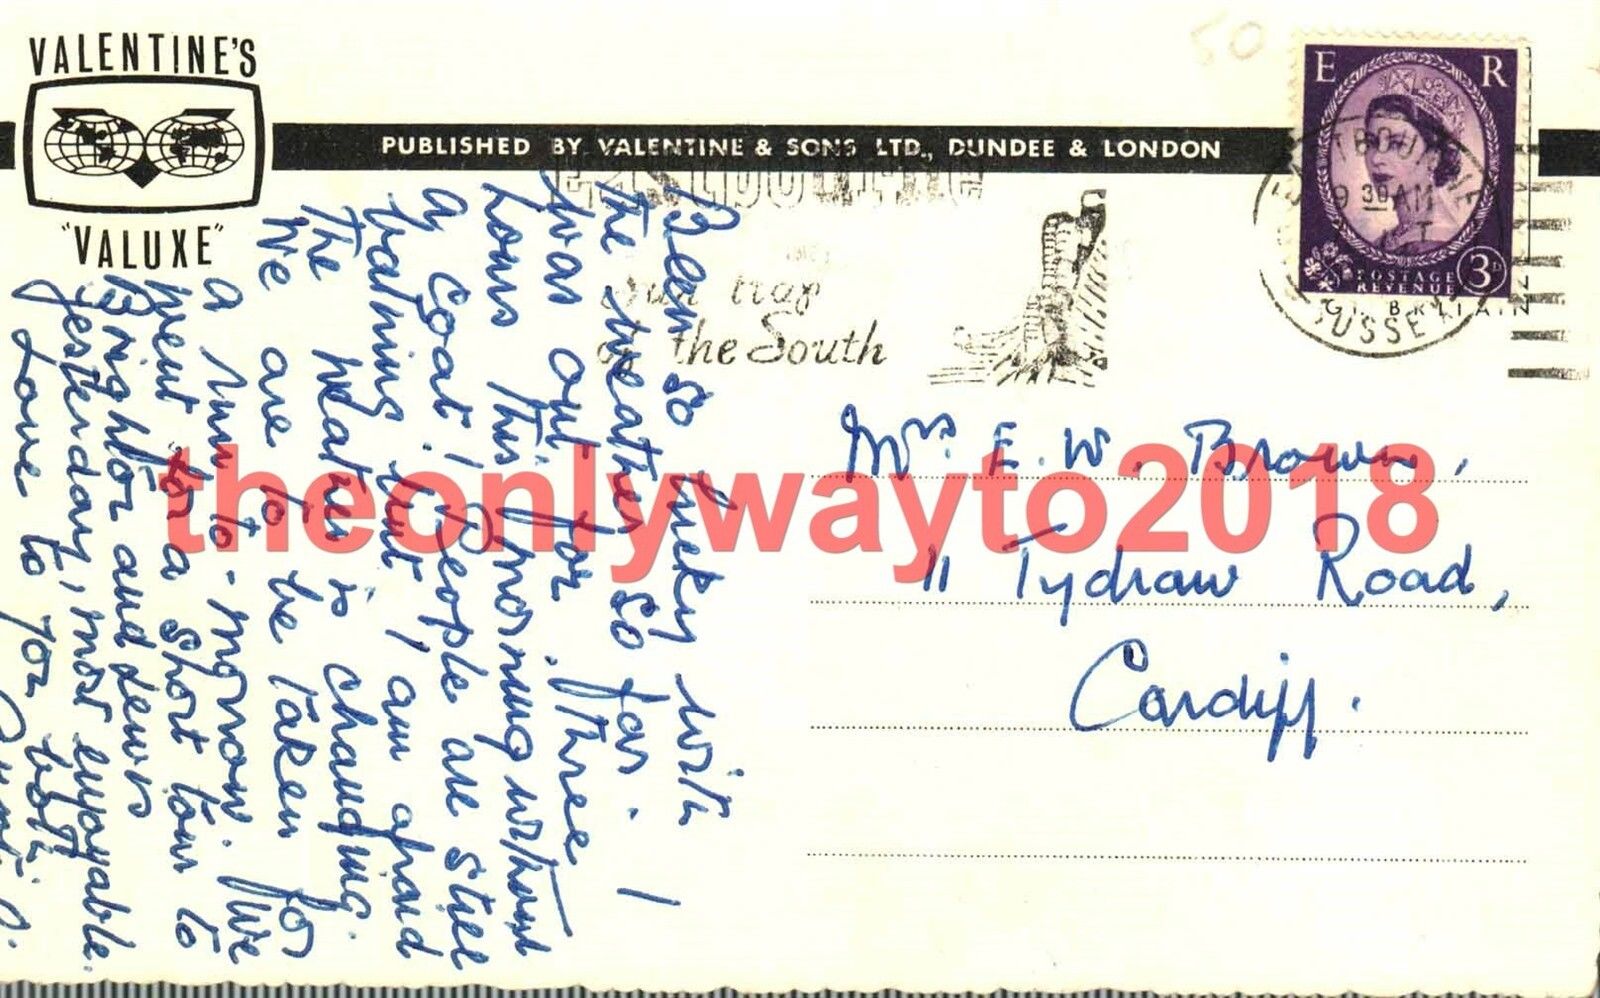 VALENTINE'S
"VALUXE"
PUBLISHED BY VALENTINE & SONS LTD., DUNDEE & LONDON
50
E R
POSTAGE
REVENUE
3D
9 30 AM
SUSSEX
GT. BRITAIN
EASTBOURNE
Sun trap
of the South
Mrs. E. W. Brown,
11 Tydraw Road,
Cardiff.
Been so lucky with
the weather so far. I
was out for three
hours this morning without
a coat! People are still
bathing but I am afraid
the weather is changing.
We are to be taken for
a run to-morrow. We
went for a short tour to
Brighton and Lewes
yesterday, most enjoyable.
Love to you both
theonlywayto2018